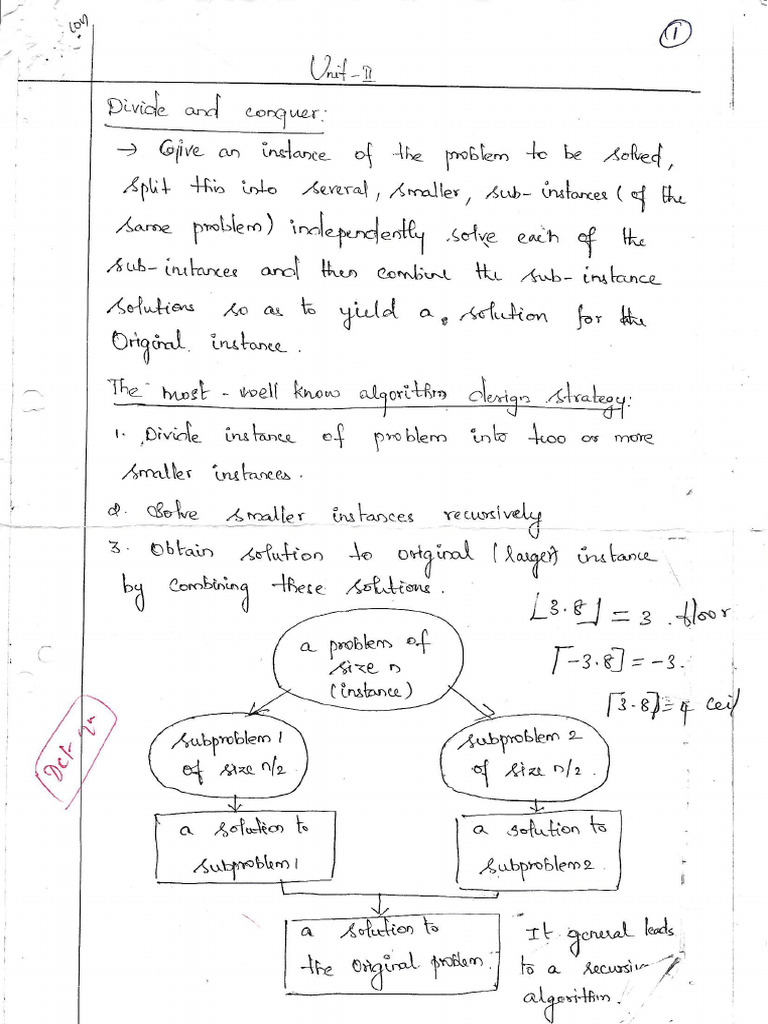 1
Unit-II
Divide and conquer:
→ Give an instance of the problem to be solved,
split this into several, smaller, sub-instances (of the
same problem) independently solve each of the
sub-instances and then combine the sub-instance
solutions so as to yield a solution for the
Original instance.
The most-well know algorithm design strategy:
1. Divide instance of problem into two or more
smaller instances.
2. Solve smaller instances recursively
3. Obtain solution to original (larger) instance
by combining these solutions.
⌊3.8⌋ = 3 . floor
⌈-3.8⌉ = -3.
⌈3.8⌉ = 4 ceil
a problem of
size n
(instance)
subproblem 1
of size n/2
subproblem 2
of size n/2.
a solution to
subproblem 1
a solution to
subproblem 2.
a solution to
the original problem.
It general leads
to a recursive
algorithm.